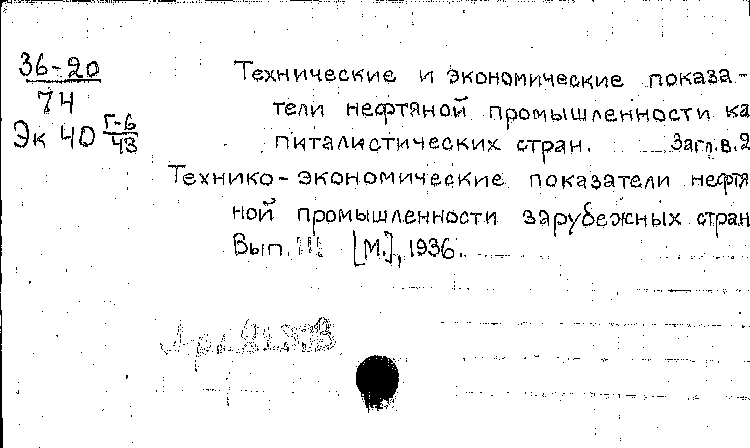 36-20
74
Эк 40 Г-6
43
Технические и экономические показа-
тели нефтяной промышленности ка
питалистических стран. Загл. в. 2
Технико-экономические показатели нефтя
ной промышленности зарубежных стран
Вып. III [М.], 1936.